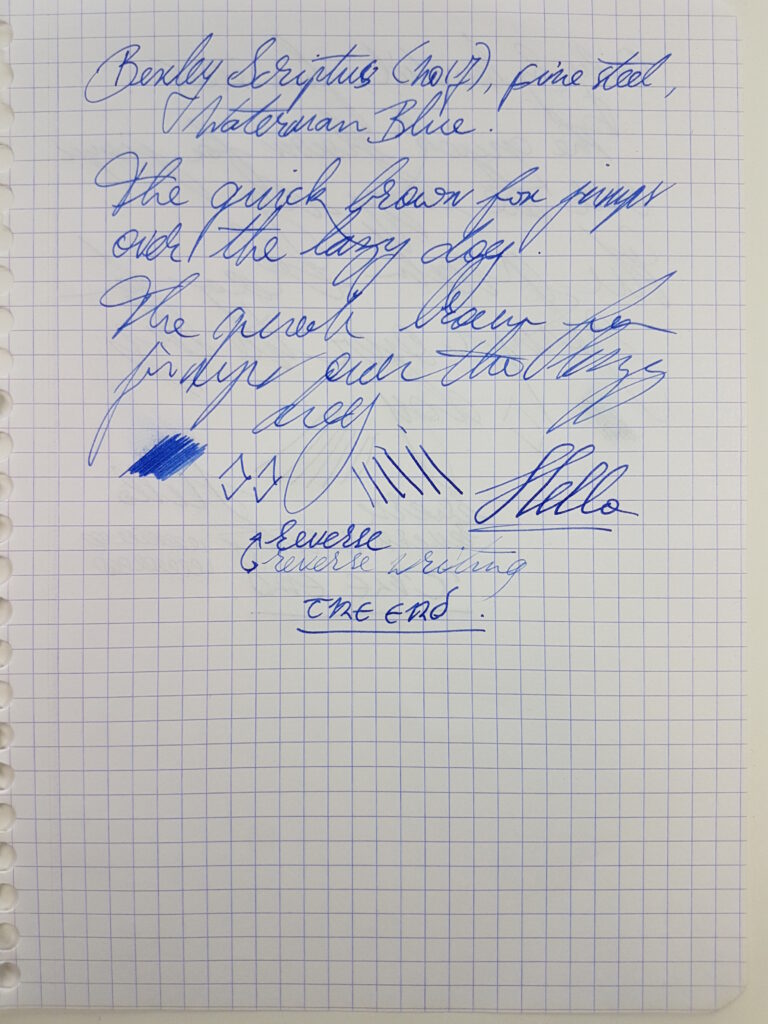 Bexley Scriptus (no 17), fine steel,
Waterman Blue.
The quick brown fox jumps
over the lazy dog.
The quick brown fox
jumps over the lazy
dog
Hello
Reverse
reverse writing
THE END.